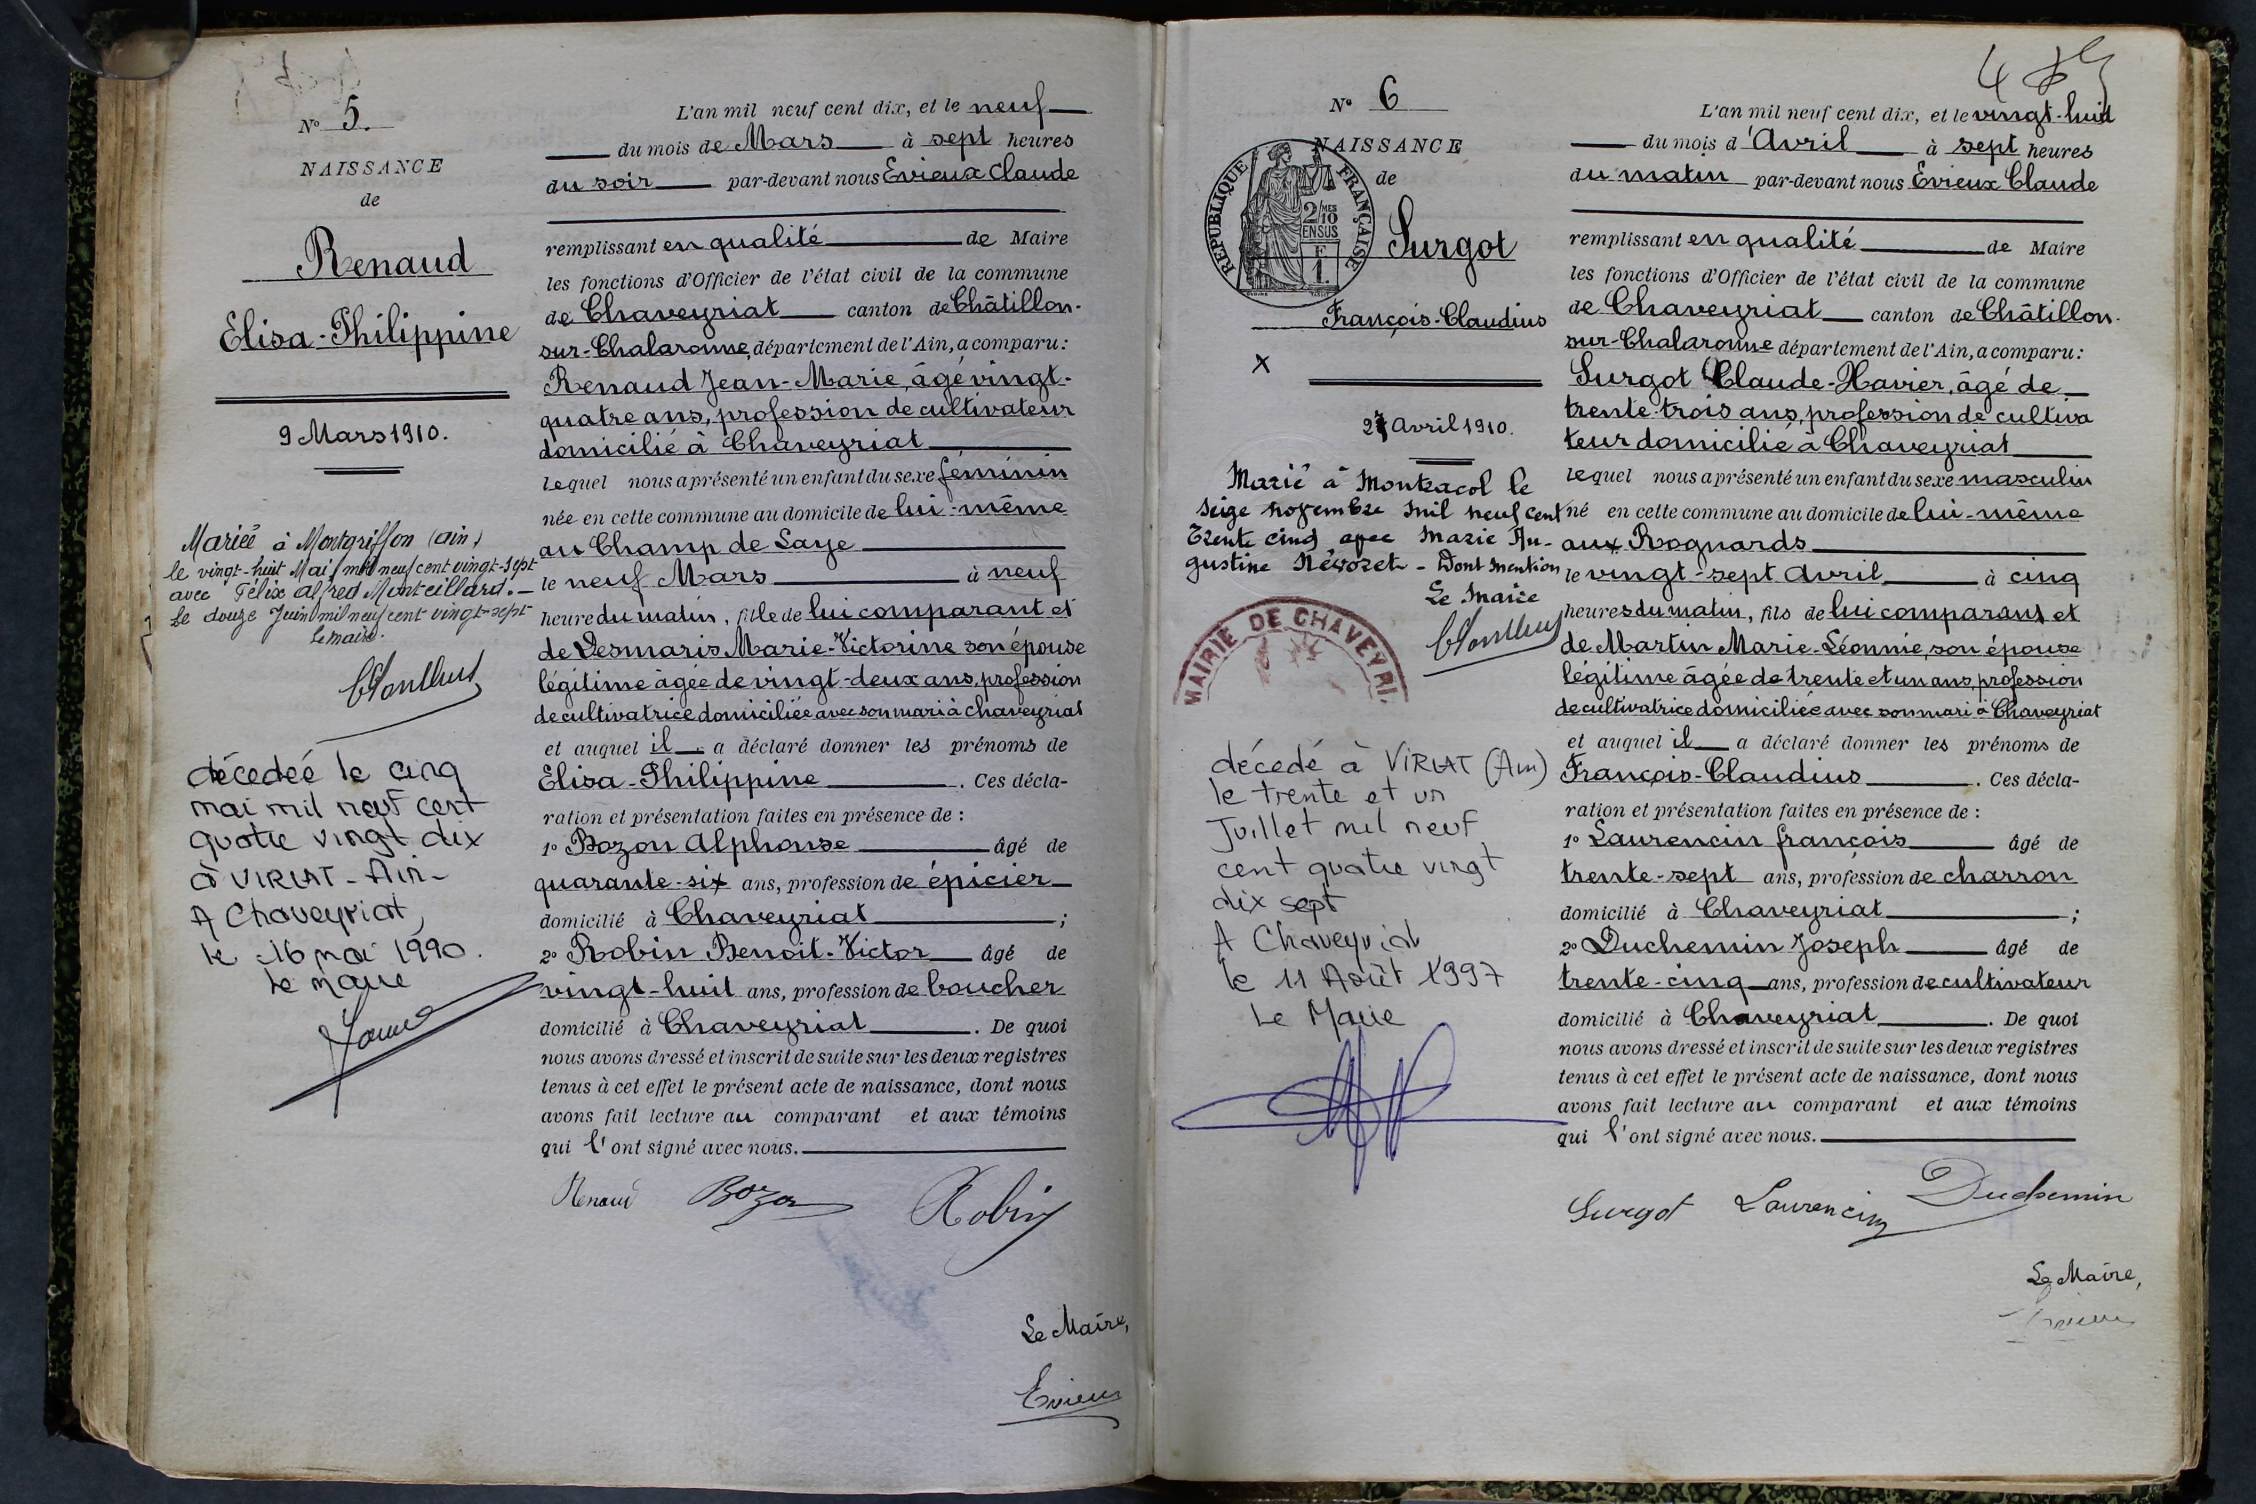 N° 5.
NAISSANCE
de
Renaud
Elisa-Philippine
9 Mars 1910.
Mariée à Montgriffon (ain)
le vingt-huit Mai mil neuf cent vingt-sept
avec Félix Alfred Montcillard. —
Le douze Juin mil neuf cent vingt-sept
Le maire.
décedeé le cinq
mai mil neuf cent
quatre vingt dix
à VIRIAT - Ain -
A Chaveyriat,
le 16 mai 1990.
Le maire
L'an mil neuf cent dix, et le neuf
du mois de Mars à sept heures
du soir par-devant nous Evieux Claude
remplissant en qualité de Maire
les fonctions d'Officier de l'état civil de la commune
de Chaveyriat canton de Châtillon-
sur-Chalaronne, département de l'Ain, a comparu :
Renaud Jean-Marie, âgé vingt-
quatre ans, profession de cultivateur
domicilié à Chaveyriat
lequel nous a présenté un enfant du sexe féminin
née en cette commune au domicile de lui-même
au Champ de Laye
le neuf Mars à neuf
heure du matin, fille de lui comparant et
de Desmaris Marie-Victorine son épouse
légitime âgée de vingt-deux ans, profession
de cultivatrice domiciliée avec son mari à Chaveyriat
et auquel il a déclaré donner les prénoms de
Elisa-Philippine. Ces décla-
ration et présentation faites en présence de :
1° Bozon Alphonse âgé de
quarante-six ans, profession de épicier
domicilié à Chaveyriat ;
2° Robin Benoit-Victor âgé de
vingt-huit ans, profession de boucher
domicilié à Chaveyriat. De quoi
nous avons dressé et inscrit de suite sur les deux registres
tenus à cet effet le présent acte de naissance, dont nous
avons fait lecture au comparant et aux témoins
qui l'ont signé avec nous.
Renaud Bozon Robin
Le Maire,
Evieux
N° 6
NAISSANCE
de
REPUBLIQUE FRANÇAISE
2/10 MES
EN SUS
F
1.
Surgot
François-Claudius
X
27 Avril 1910.
Marié à Montracol le
seize novembre mil neuf cent
trente cinq avec Marie Au-
gustine Névoret - Dont mention
Le Maire
MAIRIE DE CHAVEYRI
décédé à VIRIAT (Ain)
le trente et un
Juillet mil neuf
cent quatre vingt
dix sept
A Chaveyriat
le 11 Août 1997
Le Maire
L'an mil neuf cent dix, et le vingt-huit
du mois d'Avril à sept heures
du matin par-devant nous Evieux Claude
remplissant en qualité de Maire
les fonctions d'Officier de l'état civil de la commune
de Chaveyriat canton de Châtillon-
sur-Chalaronne département de l'Ain, a comparu :
Surgot Claude-Xavier, âgé de
trente-trois ans, profession de cultiva
teur domicilié à Chaveyriat
lequel nous a présenté un enfant du sexe masculin
né en cette commune au domicile de lui-même
aux Rognards
le vingt-sept Avril à cinq
heures du matin, fils de lui comparant et
de Martin Marie-Léonnie, son épouse
légitime âgée de trente et un ans, profession
de cultivatrice domiciliée avec son mari à Chaveyriat
et auquel il a déclaré donner les prénoms de
François-Claudius. Ces décla-
ration et présentation faites en présence de :
1° Laurencin françois âgé de
trente-sept ans, profession de charron
domicilié à Chaveyriat ;
2° Duchemin Joseph âgé de
trente-cinq ans, profession de cultivateur
domicilié à Chaveyriat. De quoi
nous avons dressé et inscrit de suite sur les deux registres
tenus à cet effet le présent acte de naissance, dont nous
avons fait lecture au comparant et aux témoins
qui l'ont signé avec nous.
Surgot Laurencin Duchemin
Le Maire,
Evieux